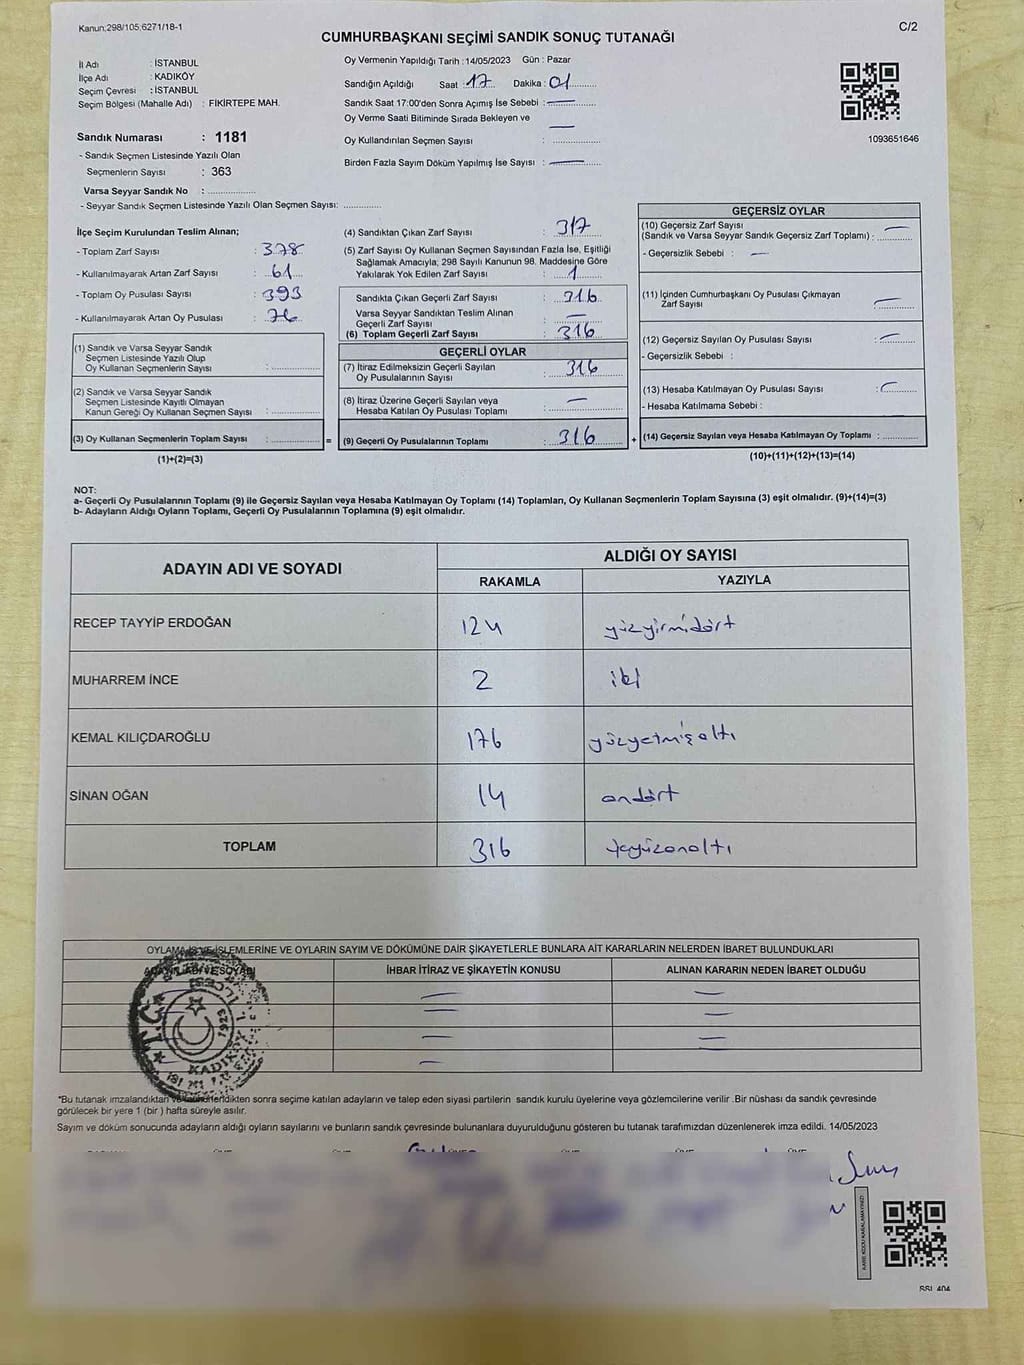 Kanun;298/105;6271/18-1
C/2
CUMHURBAŞKANI SEÇİMİ SANDIK SONUÇ TUTANAĞI
İl Adı : İSTANBUL
İlçe Adı : KADIKÖY
Seçim Çevresi : İSTANBUL
Seçim Bölgesi (Mahalle Adı) : FİKİRTEPE MAH.
Sandık Numarası : 1181
- Sandık Seçmen Listesinde Yazılı Olan
Seçmenlerin Sayısı : 363
Varsa Seyyar Sandık No : ...............
- Seyyar Sandık Seçmen Listesinde Yazılı Olan Seçmen Sayısı: ............
Oy Vermenin Yapıldığı Tarih :14/05/2023 Gün : Pazar
Sandığın Açıldığı Saat : 17 Dakika : 01
Sandık Saat 17:00'den Sonra Açımış İse Sebebi : —
Oy Verme Saati Bitiminde Sırada Bekleyen ve
Oy Kullandırılan Seçmen Sayısı : —
Birden Fazla Sayım Döküm Yapılmış İse Sayısı : —
1093651646
İlçe Seçim Kurulundan Teslim Alınan;
- Toplam Zarf Sayısı : 378
- Kullanılmayarak Artan Zarf Sayısı : 61
- Toplam Oy Pusulası Sayısı : 393
- Kullanılmayarak Artan Oy Pusulası : 76
(1) Sandık ve Varsa Seyyar Sandık
Seçmen Listesinde Yazılı Olup
Oy Kullanan Seçmenlerin Sayısı : ............
(2) Sandık ve Varsa Seyyar Sandık
Seçmen Listesinde Kayıtlı Olmayan
Kanun Gereği Oy Kullanan Seçmen Sayısı : ............
(3) Oy Kullanan Seçmenlerin Toplam Sayısı : ............
(1)+(2)=(3)
=
(4) Sandıktan Çıkan Zarf Sayısı : 317
(5) Zarf Sayısı Oy Kullanan Seçmen Sayısından Fazla İse, Eşitliği
Sağlamak Amacıyla; 298 Sayılı Kanunun 98. Maddesine Göre
Yakılarak Yok Edilen Zarf Sayısı : 1
Sandıkta Çıkan Geçerli Zarf Sayısı : 316
Varsa Seyyar Sandıktan Teslim Alınan
Geçerli Zarf Sayısı : —
(6) Toplam Geçerli Zarf Sayısı : 316
GEÇERLİ OYLAR
(7) İtiraz Edilmeksizin Geçerli Sayılan
Oy Pusulalarının Sayısı : 316
(8) İtiraz Üzerine Geçerli Sayılan veya
Hesaba Katılan Oy Pusulası Toplamı : —
(9) Geçerli Oy Pusulalarının Toplamı : 316
+
GEÇERSİZ OYLAR
(10) Geçersiz Zarf Sayısı —
(Sandık ve Varsa Seyyar Sandık Geçersiz Zarf Toplamı) : .........
- Geçersizlik Sebebi : —
(11) İçinden Cumhurbaşkanı Oy Pusulası Çıkmayan
Zarf Sayısı —
(12) Geçersiz Sayılan Oy Pusulası Sayısı : —
- Geçersizlik Sebebi :
(13) Hesaba Katılmayan Oy Pusulası Sayısı : —
- Hesaba Katılmama Sebebi :
(14) Geçersiz Sayılan veya Hesaba Katılmayan Oy Toplamı : .........
(10)+(11)+(12)+(13)=(14)
NOT:
a- Geçerli Oy Pusulalarının Toplamı (9) ile Geçersiz Sayılan veya Hesaba Katılmayan Oy Toplamı (14) Toplamları, Oy Kullanan Seçmenlerin Toplam Sayısına (3) eşit olmalıdır. (9)+(14)=(3)
b- Adayların Aldığı Oyların Toplamı, Geçerli Oy Pusulalarının Toplamına (9) eşit olmalıdır.
ADAYIN ADI VE SOYADI
ALDIĞI OY SAYISI
RAKAMLA YAZIYLA
RECEP TAYYİP ERDOĞAN 124 yüzyirmidört
MUHARREM İNCE 2 iki
KEMAL KILIÇDAROĞLU 176 yüzyetmişaltı
SİNAN OĞAN 14 ondört
TOPLAM 316 üçyüzonaltı
OYLAMA İŞ VE İŞLEMLERİNE VE OYLARIN SAYIM VE DÖKÜMÜNE DAİR ŞİKAYETLERLE BUNLARA AİT KARARLARIN NELERDEN İBARET BULUNDUKLARI
ADAYIN ADI VE SOYADI İHBAR İTİRAZ VE ŞİKAYETİN KONUSU ALINAN KARARIN NEDEN İBARET OLDUĞU
— —
— —
— —
— —
T.C.
1923
KADIKÖY
*Bu tutanak imzalandıktan ve mühürlendikten sonra seçime katılan adayların ve talep eden siyasi partilerin sandık kurulu üyelerine veya gözlemcilerine verilir .Bir nüshası da sandık çevresinde
görülecek bir yere 1 (bir ) hafta süreyle asılır.
Sayım ve döküm sonucunda adayların aldığı oyların sayılarını ve bunların sandık çevresinde bulunanlara duyurulduğunu gösteren bu tutanak tarafımızdan düzenlenerek imza edildi. 14/05/2023
KARE KODU KARALAMAYINIZ!